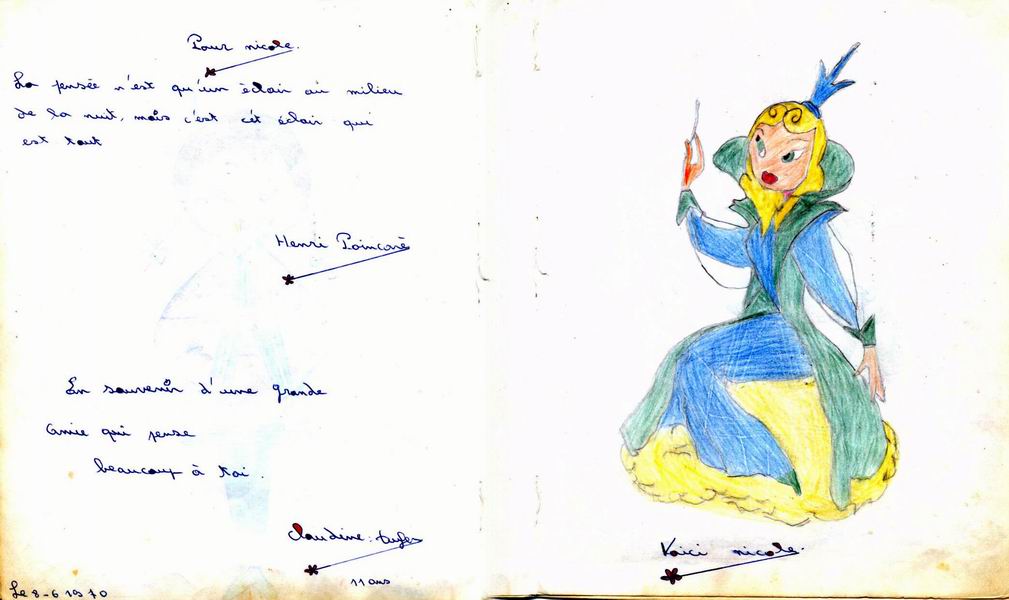 Pour nicole.
La pensée n'est qu'un éclair au milieu
de la nuit, mais c'est cet éclair qui
est tout
Henri Poincaré
En souvenir d'une grande
amie qui pense
beaucoup à toi.
Claudine
11 ans
Le 8-6 1970
Voici nicole.